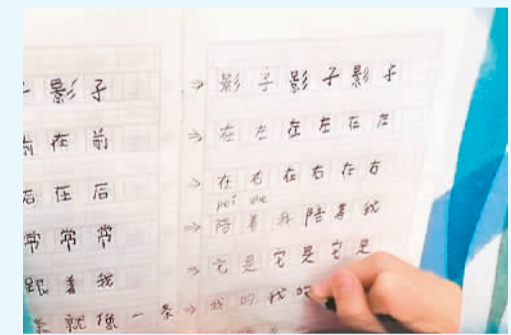 影子
前在前
后在后
常常常
跟着我
就像一条
→ 影子影子影子
→ 在左在左在左
→ 在右在右在右
pei
→ 陪着我陪着我
→ 它是它是它是
→ 我的我的